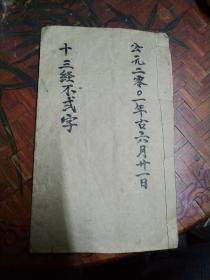 公元二零0一年古六月廿一日
十三经不弍字